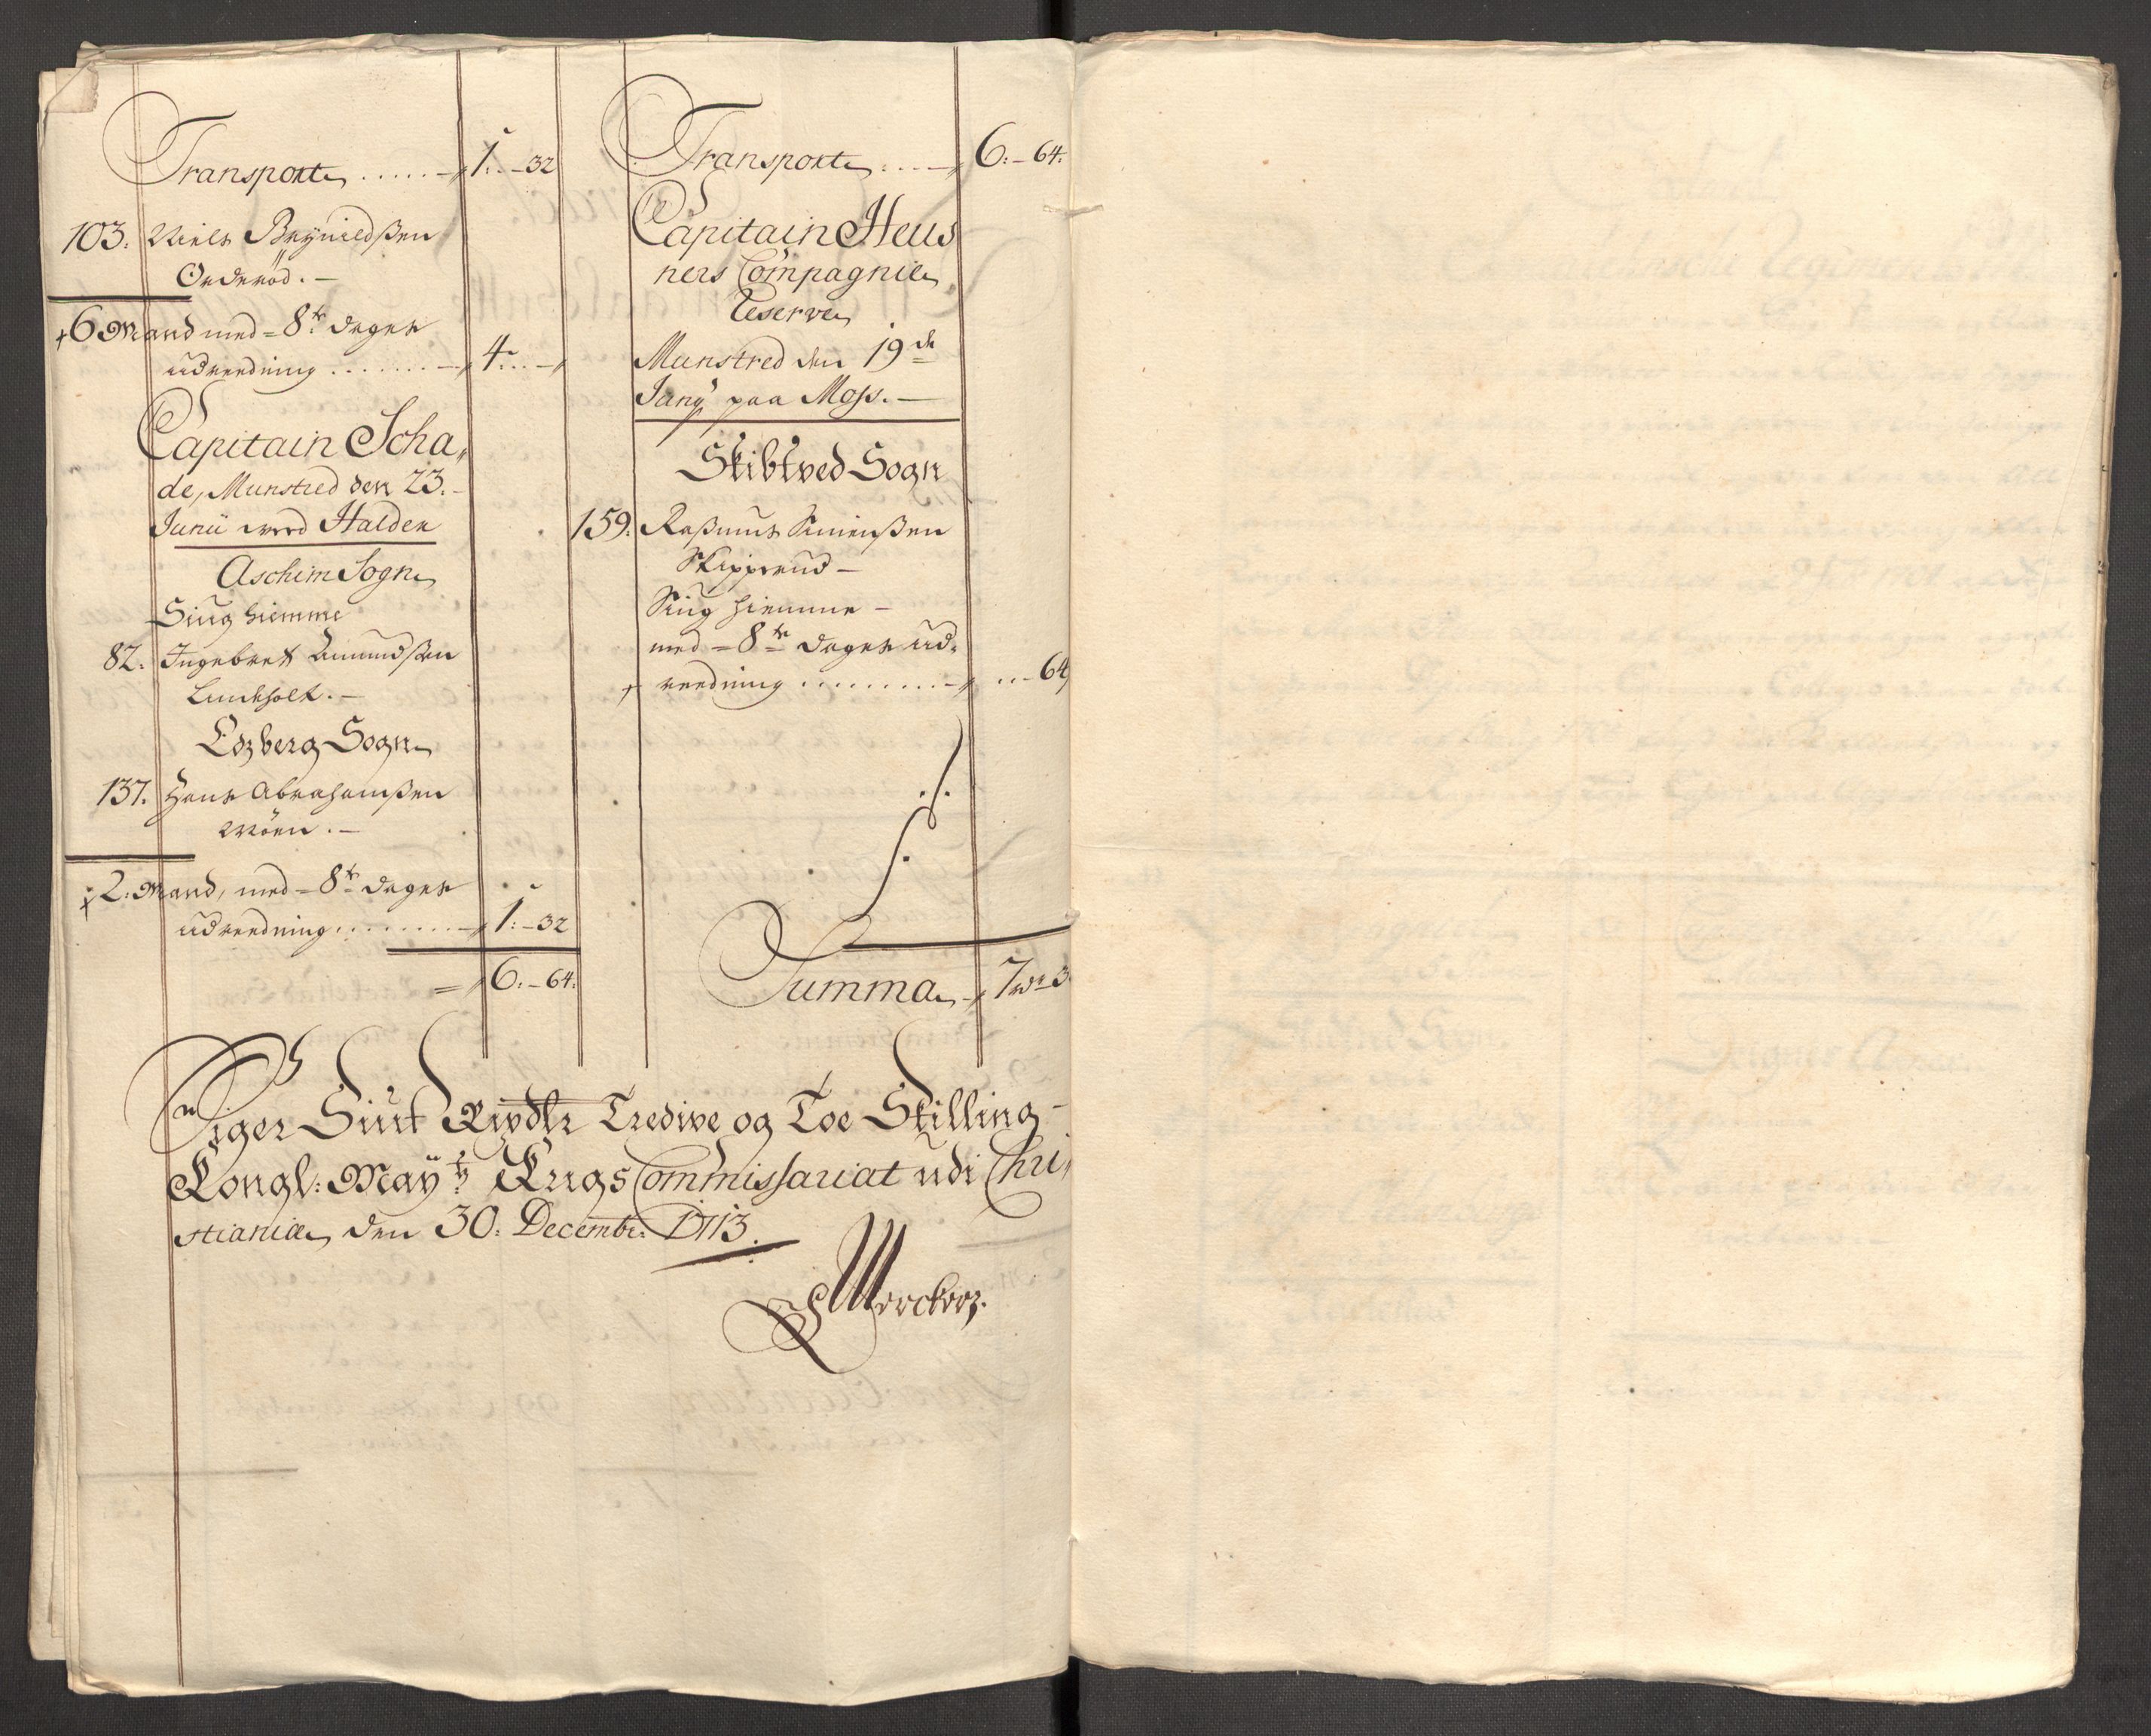 Transporte ..... 1:-32
103. Niels Brynildßen
Orderöd.-
6 Mand med=8te dages
udreedning ....... 4:..-
Capitain Scha,
de, Munstred den 23.
Junii ved Halden
Aschim Sogn
Siug hiemme
82. Ingebret Amundßen
Lundholt.-
Edzberg Sogn
137. Hans Abrahamßen
Möen.-
2: Mand, med=8te dages
udreedning ........ 1:-32
= 6:-64:
Transporte .... 6:-64:
Capitain Heus
ners Compagnie
Reserve
Munstred den 19de
Junÿ paa Moss.-
Skibtved Sogn
159. Raßmus Simenßen
Skipperud-
Siug hiemme-
med=8te dages ud-
reedning ......... ..-64
Summa 7 rdr 3
Siger Siuf Rixdlr Tredive og Toe Skilling-
Kongl: Mayts Krigs Commissariat udi Chri,
stiania den 30: Decembr: 1713.
Werckers.